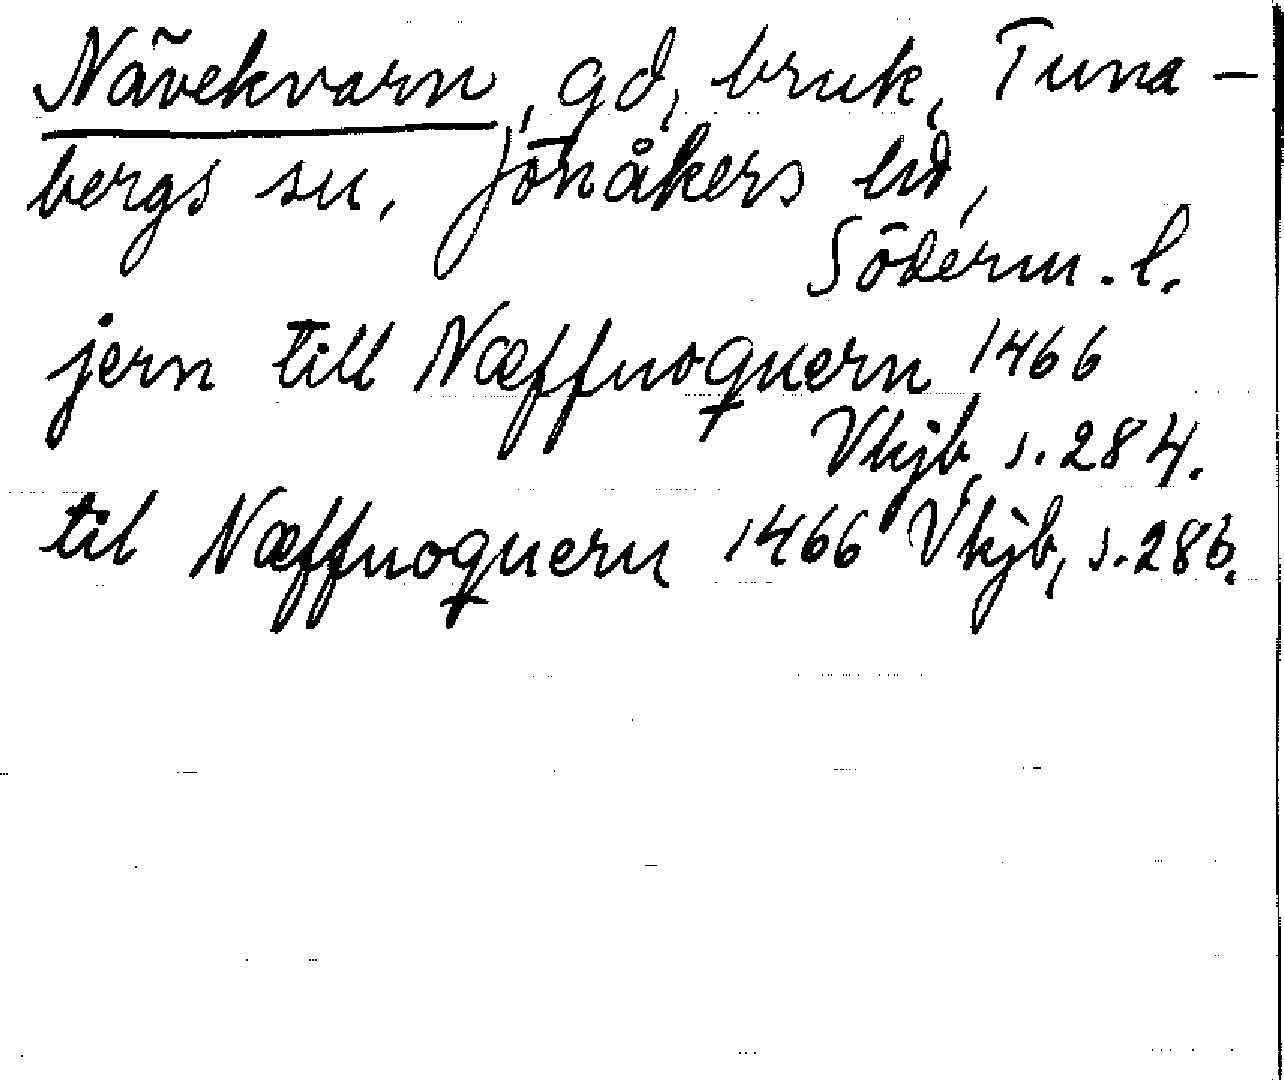 Nävekvarn, gd, bruk, Tuna-
bergs sn, Jönåkers hd,
Söderm. l.
jern till Næffuoquern 1466
Vkjb, s. 284.
til Næffuoquern 1466 Vkjb, s. 286.